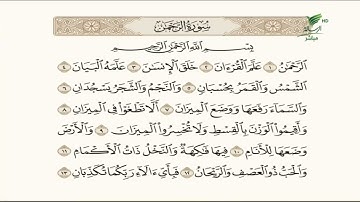 سُورَةُ الرَّحْمَٰن
بِسْمِ اللَّهِ الرَّحْمَٰنِ الرَّحِيمِ
الرَّحْمَٰنُ ١ عَلَّمَ الْقُرْءَانَ ٢ خَلَقَ الْإِنسَٰنَ ٣ عَلَّمَهُ الْبَيَانَ ٤
الشَّمْسُ وَالْقَمَرُ بِحُسْبَانٍ ٥ وَالنَّجْمُ وَالشَّجَرُ يَسْجُدَانِ ٦
وَالسَّمَاءَ رَفَعَهَا وَوَضَعَ الْمِيزَانَ ٧ أَلَّا تَطْغَوْا فِي الْمِيزَانِ ٨
وَأَقِيمُوا الْوَزْنَ بِالْقِسْطِ وَلَا تُخْسِرُوا الْمِيزَانَ ٩ وَالْأَرْضَ
وَضَعَهَا لِلْأَنَامِ ١٠ فِيهَا فَٰكِهَةٌ وَالنَّخْلُ ذَاتُ الْأَكْمَامِ ١١
وَالْحَبُّ ذُو الْعَصْفِ وَالرَّيْحَانُ ١٢ فَبِأَيِّ ءَالَاءِ رَبِّكُمَا تُكَذِّبَانِ ١٣
HD
مباشر